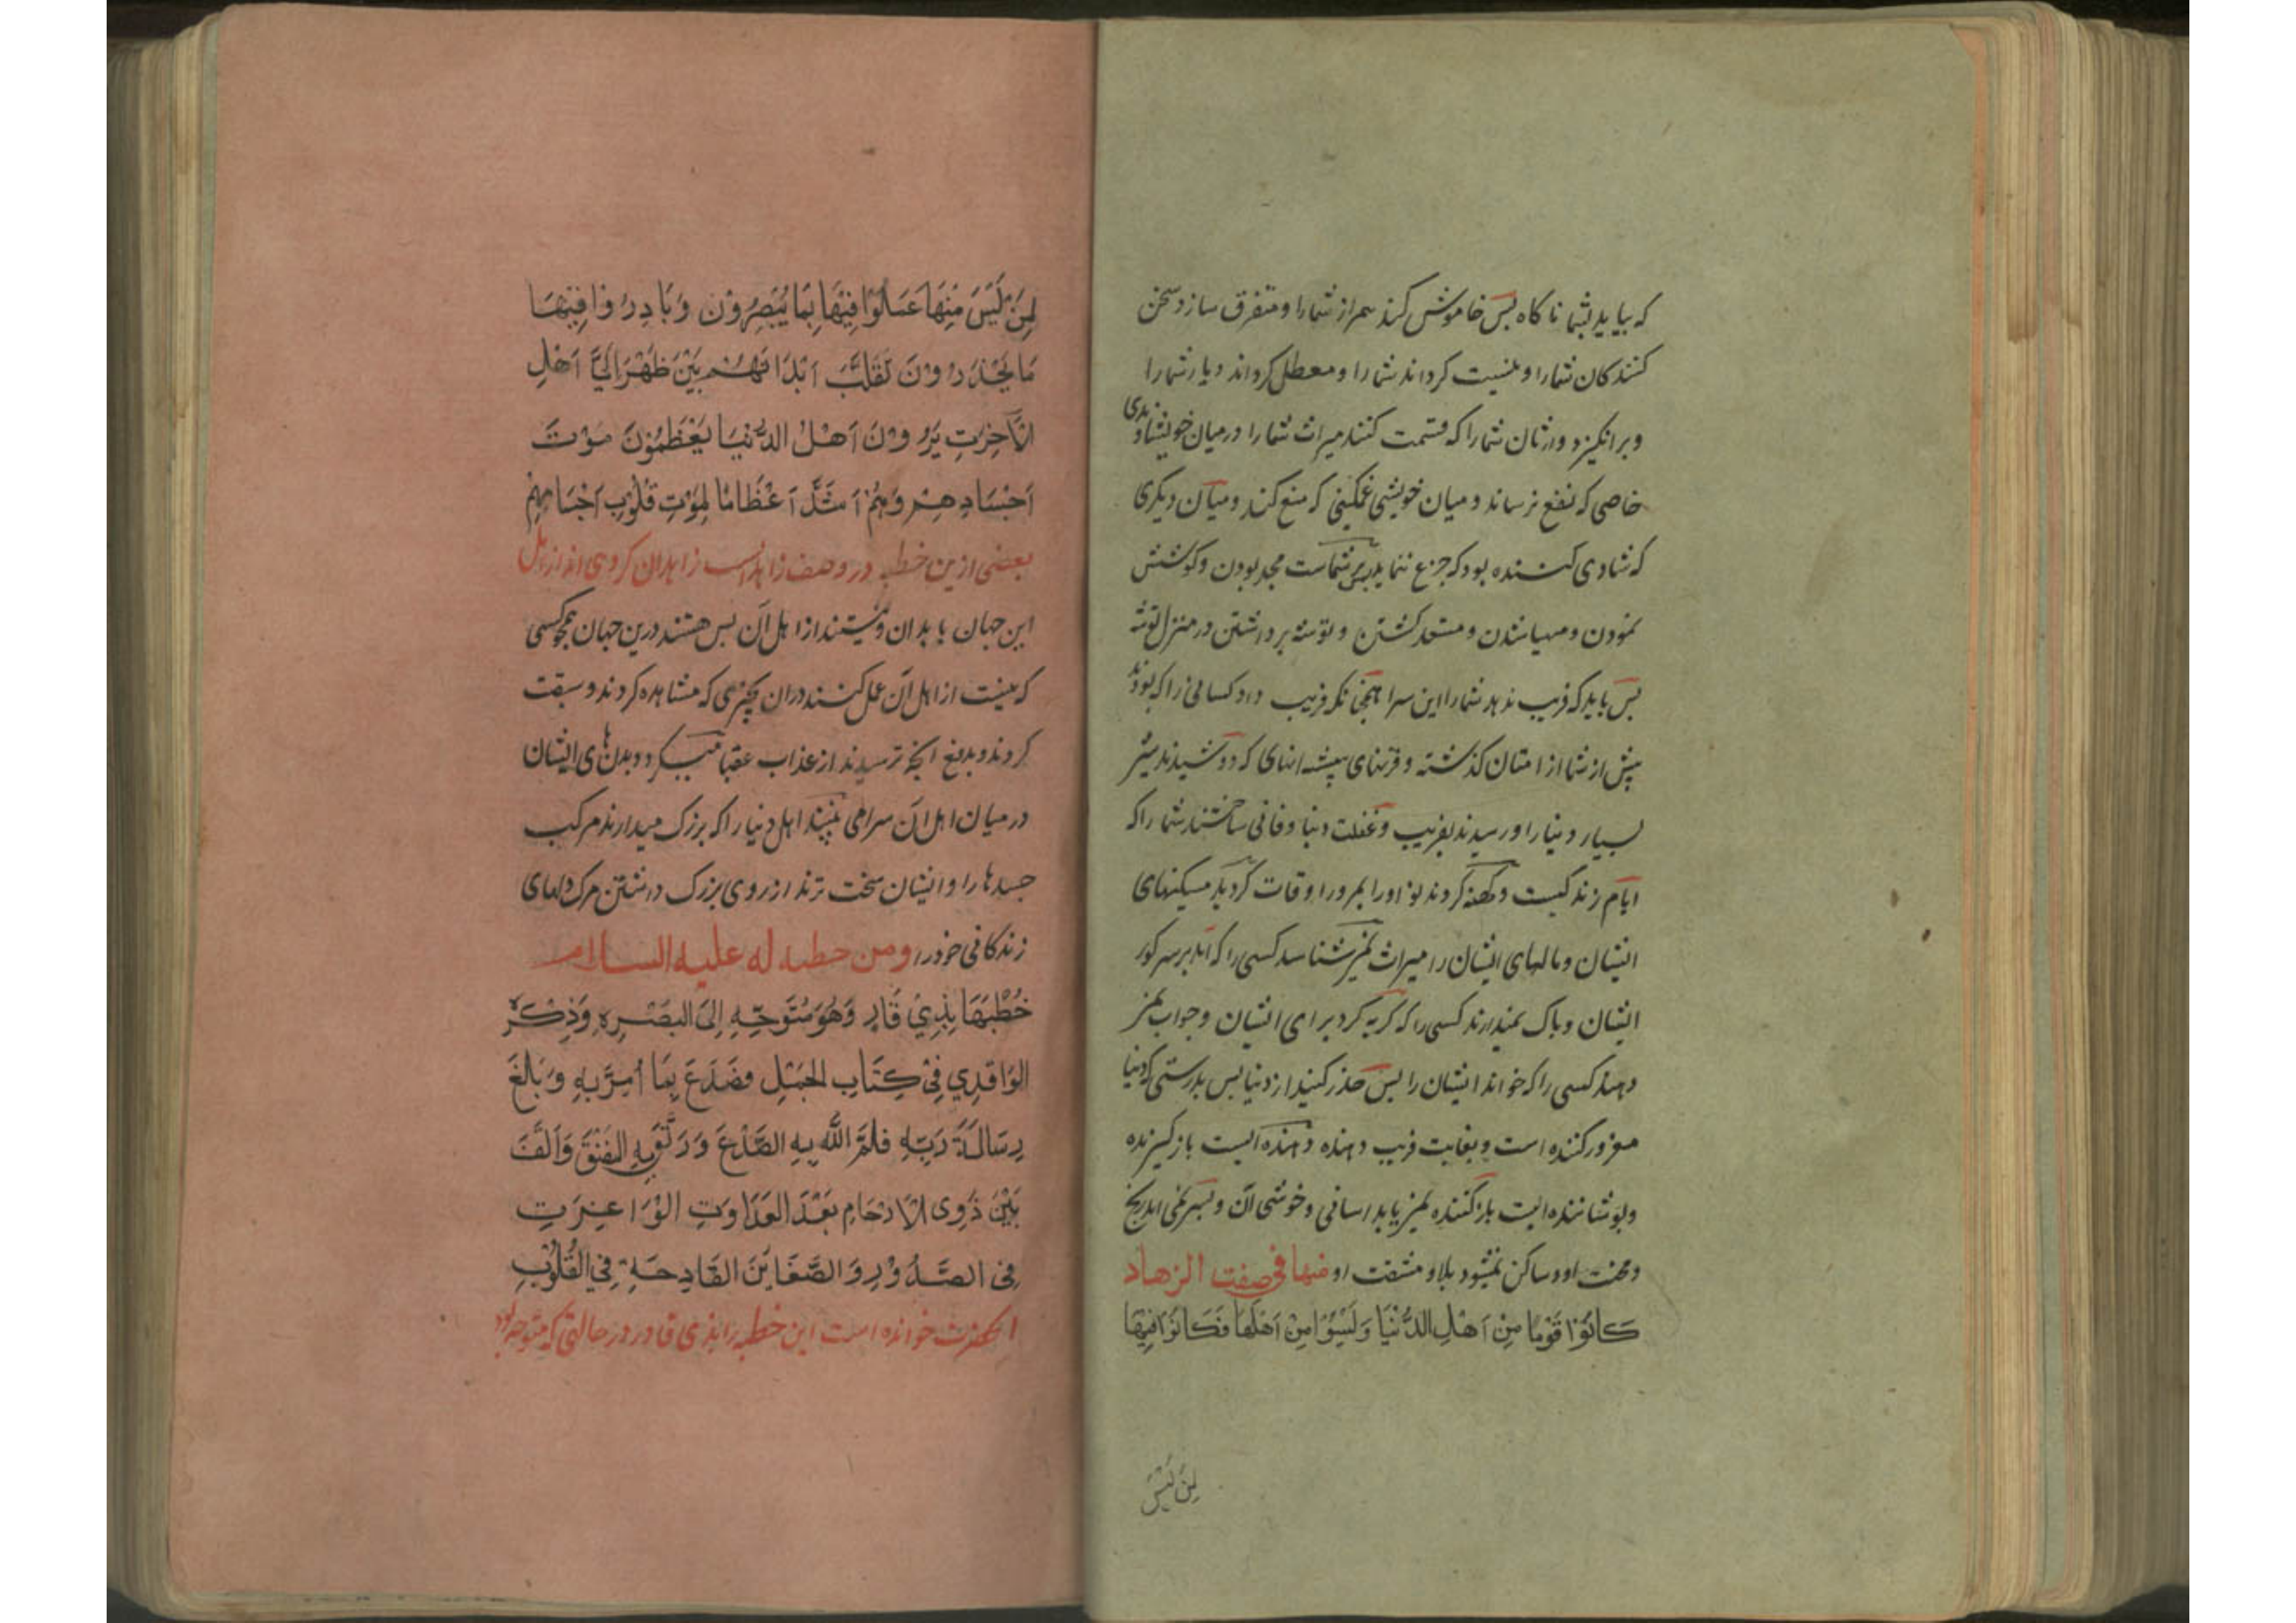 که بیاید بشما ناکاه پس خاموش کند همراز شما را و متفرق سازد سخن
کنندکان شما را و نیست کرداند شما را و معطل کرداند دیار شما را
و برانکیزد وارثان شما را که قسمت کنند میراث شما را در میان خویشاوندی
خاصی که نفع نرساند و میان خویشی غمکینی که منع نکند و میان دیکری
که شادی کننده بود که جزع ننماید پس بر شماست مجد بودن و کوشش
نمودن و مهیا شدن و مستعد کشتن و توشه برداشتن در منزل توشه
پس باید که فریب ندهد شما را این سرا همچنانکه فریب داد کسانی را که بودند
پیش از شما از امتان کذشته و قرنهای پیشه انهای که دوشیدند شیر
بسیار دنیا را و رسیدند بفریب و غفلت دنیا و فانی ساختند شمار را که
ایام زندکیست و کهنه کردند نو او را بمرور اوقات کردید مسکنهای
ایشان و مالهای ایشان را میراث نمیشناسد کسی را که اید بر سر کور
ایشان و باک نمیدارند کسی را که کریه کرد برای ایشان و جواب نمی
دهند کسی را که خواند ایشان را پس حذر کنید از دنیا پس بدرستی که دنیا
مغرور کننده است و بغایت فریب دهنده دهنده ایست باز کیرنده
و پوشاننده ایست بازکننده نمی یابد اسانی و خوشی ان و بسر نمی اید رنج
و محنت او و ساکن نمیشود بلا و مشقت او منها فی صفت الزهاد
کَانُوا قَوْمًا مِنْ اَهْلِ الدُّنْیَا وَلَیْسُوْا مِنْ اَهْلِهَا فَکَانُوْا فِیْهَا
لِمَنْ لَیْسَ
لِمَنْ لَیْسَ مِنْهَا عَمَلُوْا فِیْهَا بِمَا یُبْصِرُوْن وَبَادِرُوْا فِیْهَا
مَا یَحْذَرُوْنَ تَقَلَّبَ اَبْدَانُهُمْ بَیْنَ ظَهْرَانَیْ اَهْلِ
الْآخِرَتِ یَرَوْنَ اَهْلَ الدُّنْیَا یُعَظِّمُوْنَ مَوْتَ
اَجْسَادِهِمْ وَهُمْ اَشَدُّ اَعْظَامًا لِمَوْتِ قُلُوْبِ اَحْیَائِهِمْ
بعضی ازین خطبه در وصف زاهدانست زاهدان کروهی اند از اهل
این جهان بابدان و نیستند از اهل ان پس هستند درین جهان همچو کسی
که نیست از اهل ان عمل کنند در ان بچیزی که مشاهده کردند و سبقت
کردند و بدفع انچه ترسیدند از عذاب عقبا میکردد بدنهای ایشان
در میان اهل ان سرا می بینند اهل دنیا را که بزرک میدارند مرکب
جسدها را و ایشان سخت ترند از روی بزرک داشتن مرک دلهای
زندکانی خود را ومن خطبه له علیه السلام
خُطْبَهَا بِذِیْ قَارٍ وَهُوَ مُتَوَجِّهٍ اِلَی البَصْرِهِ وَذِکْرُ
الوَاقِدِی فِیْ کِتَابِ الجَمَلِ فَصَدَعَ بِمَا اُمِرَ بِهِ وَبَالَغَ
رِسَالَةَ رَبِّهِ فَلَمَّ اللّٰه بِهِ الصَّدْعَ وَرَتَقَ بِهِ الفَتْقَ وَاَلَّفَ
بَیْنَ ذَوِی الْاَرْحَامِ بَعْدَ العَدَاوَتِ الْوَاغِرَتِ
فِی الصُّدُوْرِ وَالضَّغَایِنَ القَادِحَةِ فِی القُلُوْبِ
انحضرت خوانده است این خطبه را بذی قار در حالتی که متوجه بود